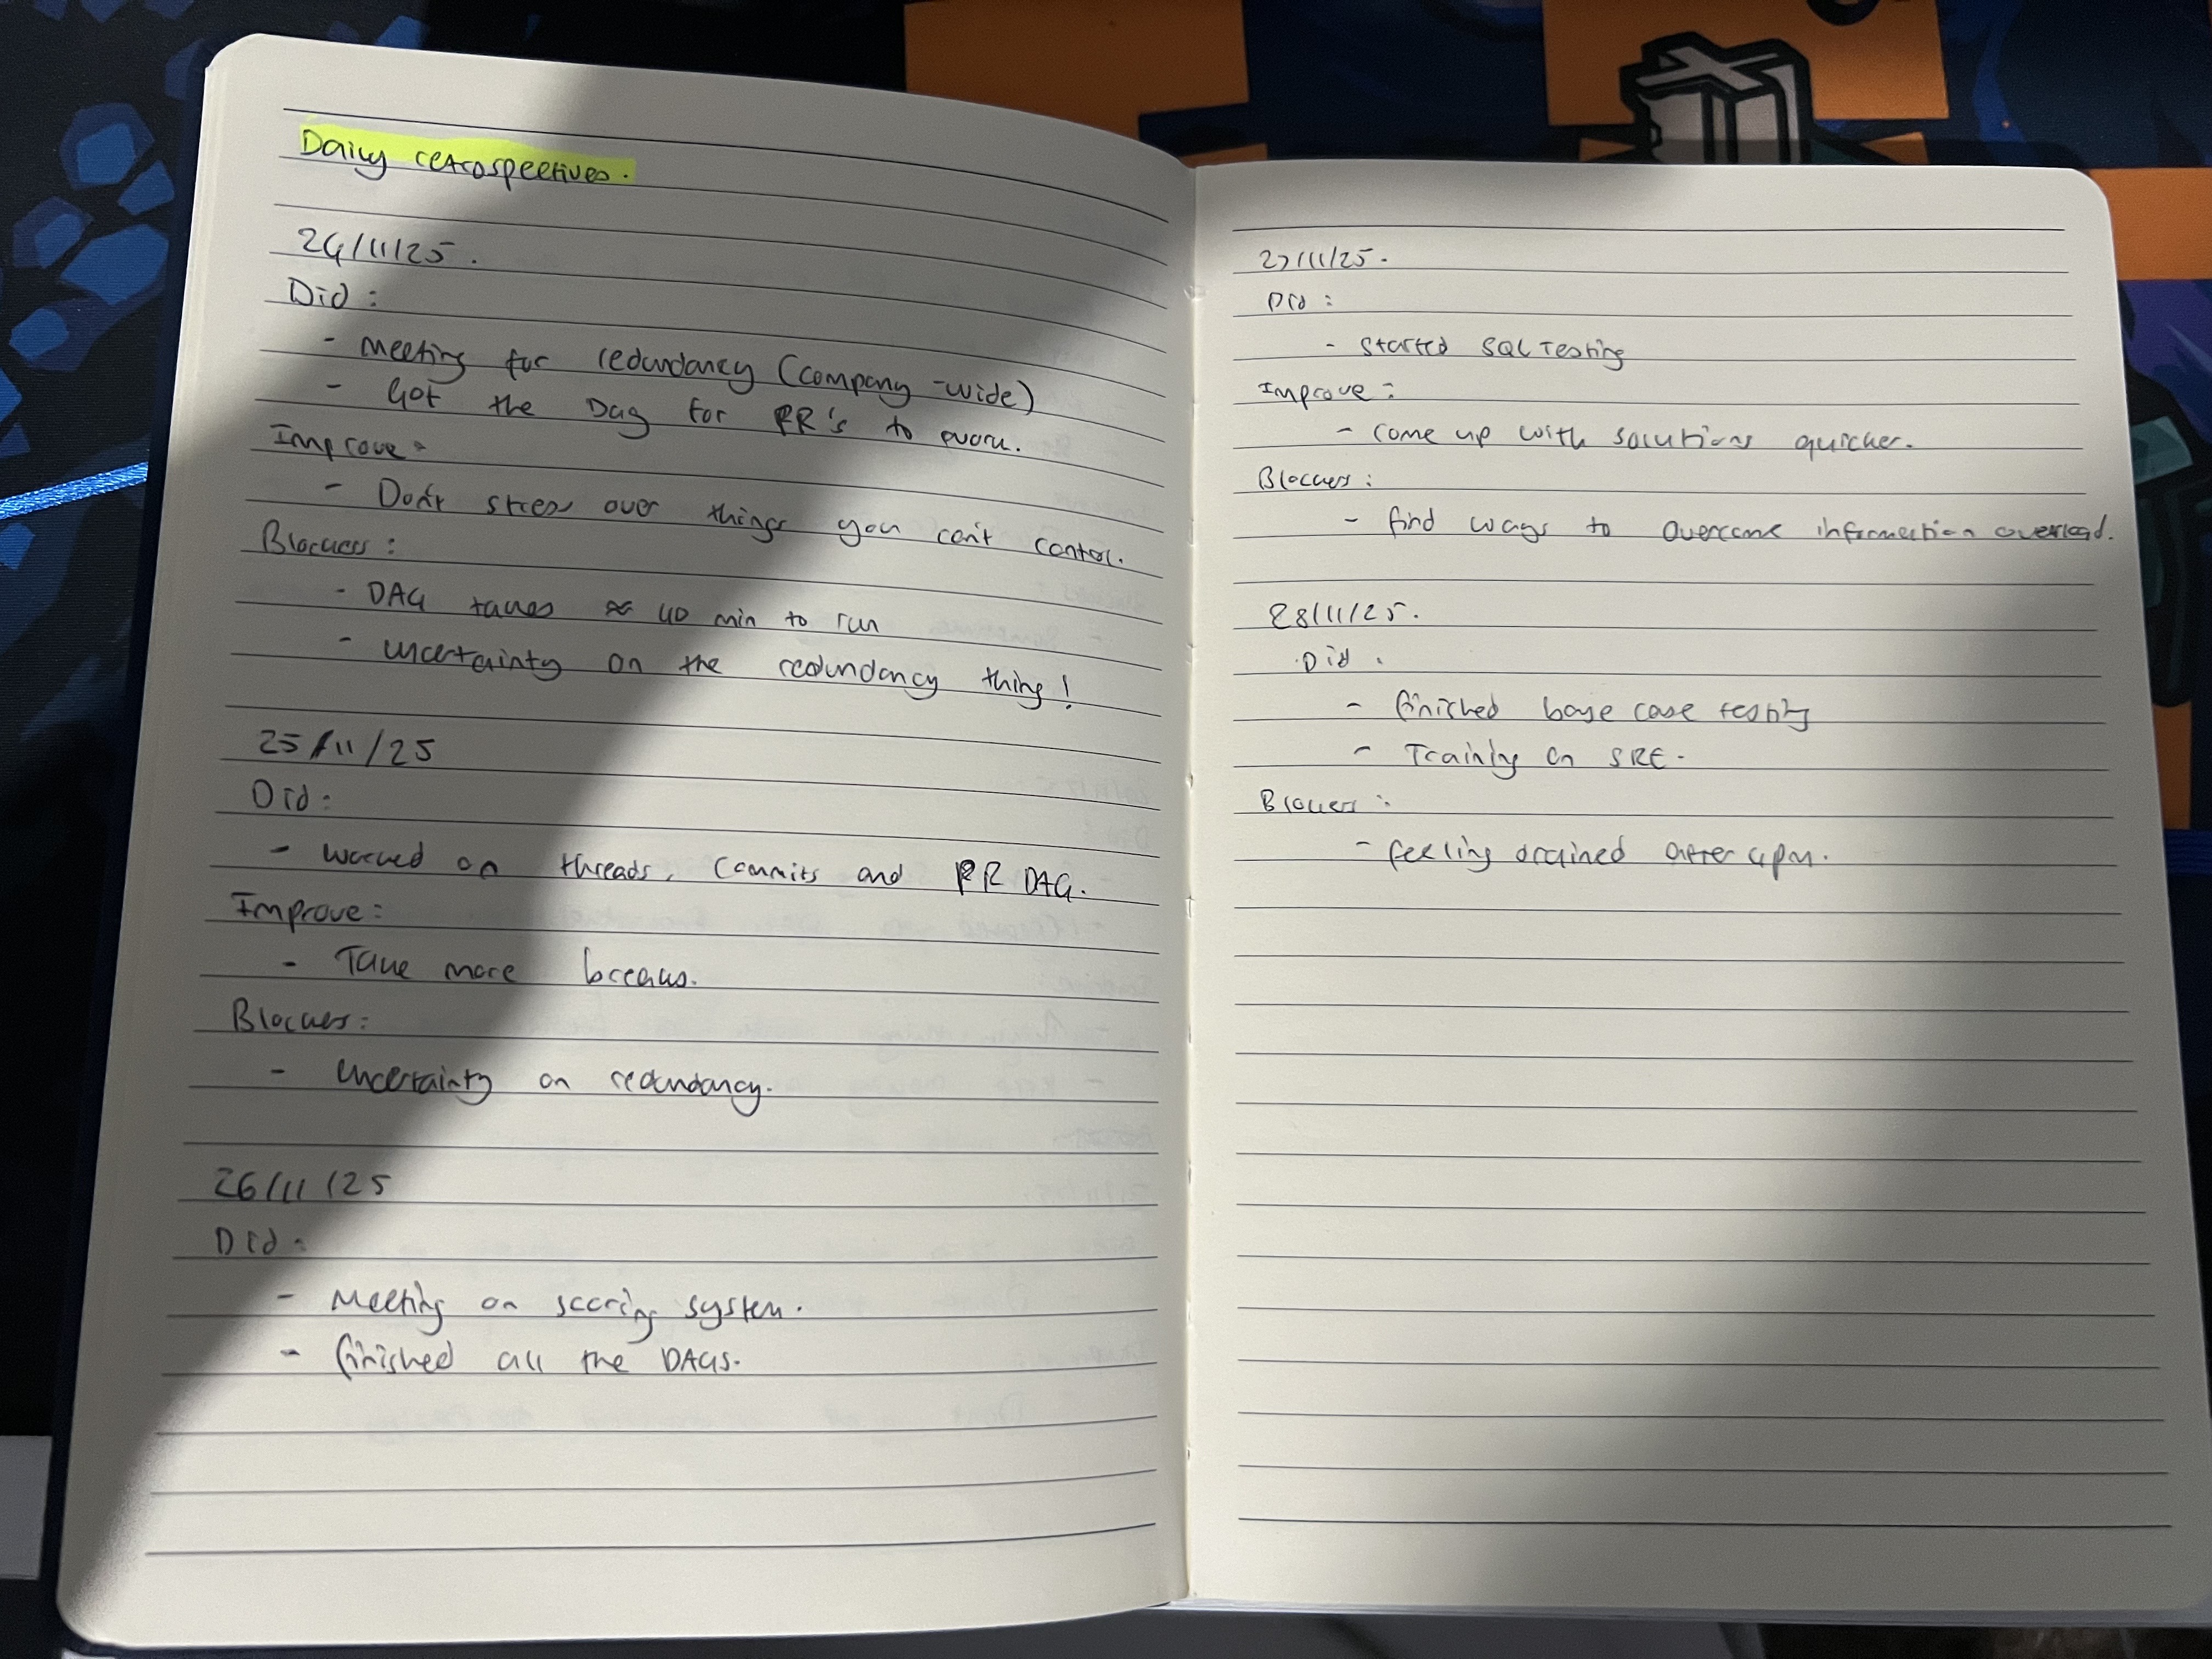 Daily retrospectives.
24/11/25.
Did:
- Meeting for redundancy (company-wide)
- Got the Dag for PR's to work.
Improve:
- Don't stress over things you can't control.
Blockers:
- DAG takes ≈ 40 min to run
- uncertainty on the redundancy thing!
25/11/25
Did:
- worked on threads, commits and PR DAG.
Improve:
- Take more breaks.
Blockers:
- Uncertainty on redundancy.
26/11/25
Did:
- Meeting on scoring system.
- finished all the DAGS.
27/11/25.
Did:
- started SQL Testing
Improve:
- come up with solutions quicker.
Blockers:
- find ways to overcome information overload.
28/11/25.
Did:
- finished base case testing
- Training on SRE.
Blockers:
- feeling drained after 4pm.